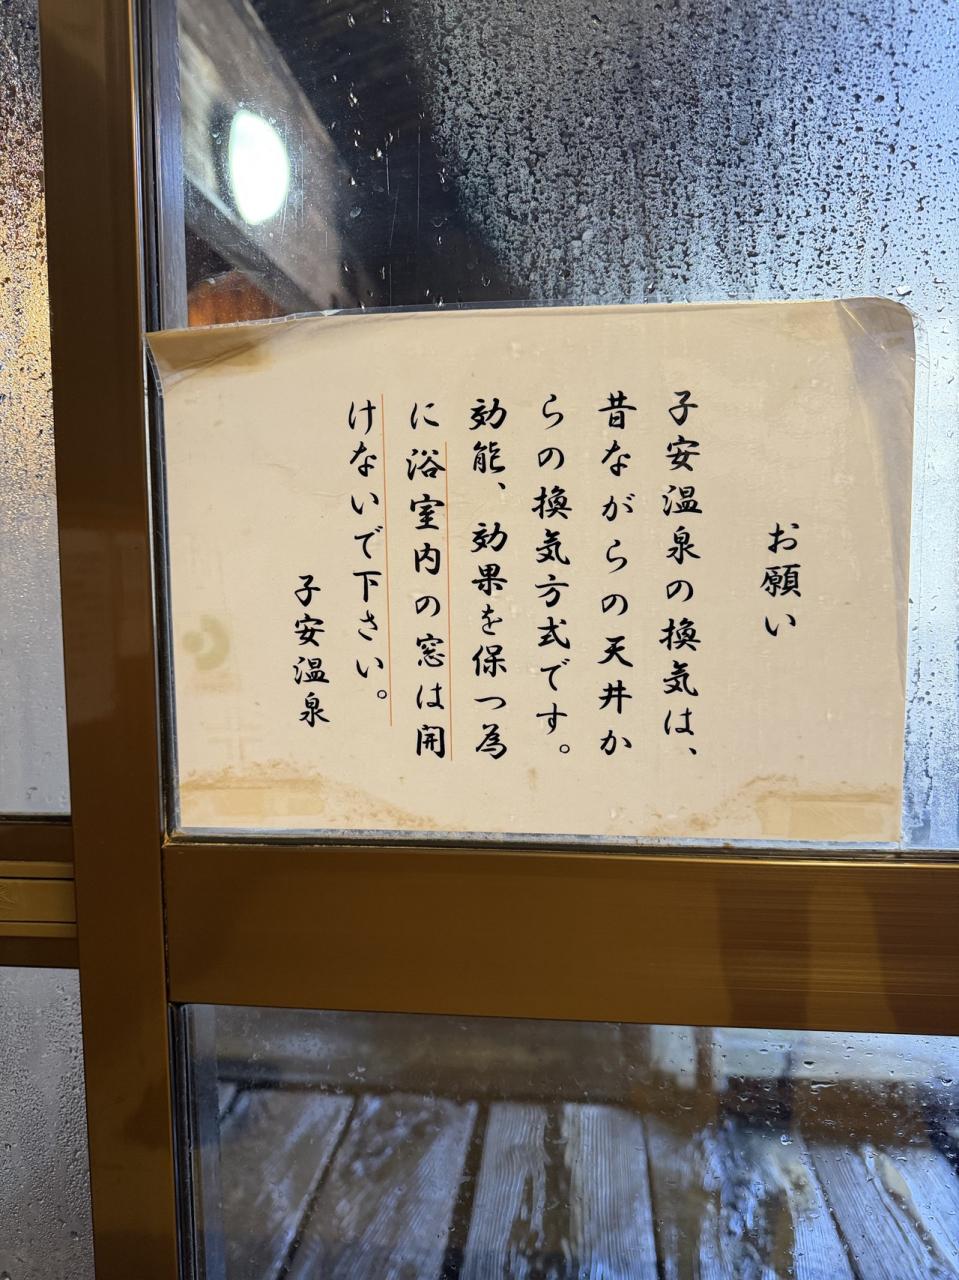 お願い
子安温泉の換気は、
昔ながらの天井か
らの換気方式です。
効能、効果を保つ為
に浴室内の窓は開
けないで下さい。
子安温泉